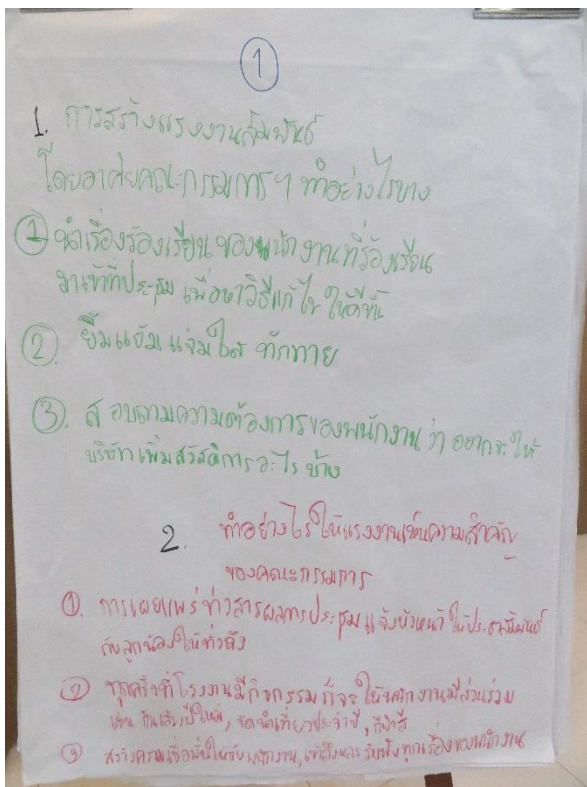 1
1. การสร้างแรงงานสัมพันธ์
โดยอาศัยคณะกรรมการฯ ทำอย่างไรบาง
① นำเรื่องร้องเรียนของพนักงานที่ร้องเรียน
มาเข้าที่ประชุม เพื่อหาวิธีแก้ไข ให้ดีขึ้น
② ยิ้มแย้มแจ่มใส ทักทาย
③. สอบถามความต้องการของพนักงาน ว่า อยากจะให้
บริษัท เพิ่มสวัสดิการอะไร บ้าง
2. ทำอย่างไรให้แรงงานเห็นความสำคัญ
ของคณะกรรมการ
①. การเผยแพร่ข่าวสารผลการประชุม แจ้งหัวหน้า ให้ประชาสัมพันธ์
กับลูกน้องให้ทั่วถึง
② ทุกครั้งที่โรงงานมีกิจกรรม ก็จะให้พนักงานมีส่วนร่วม
เช่น กินเลี้ยงปีใหม่, จัดนำเที่ยวประจำปี, กีฬาสี
③ สร้างความเชื่อมั่นให้กับพนักงาน, เข้าถึงและรับฟังทุกเรื่องของพนักงาน